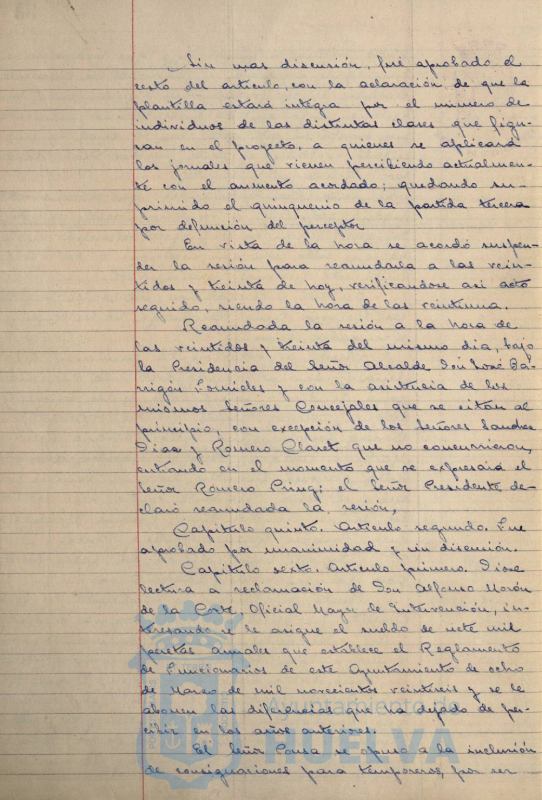 Sin mas discusión, fué aprobado el
resto del articulo, con la aclaración de que la
plantilla estará integra por el número de
individuos de las distintas clases que figu-
ran en el proyecto, a quienes se aplicará
los jornales que vienen percibiendo actualmen-
te con el aumento acordado; quedando su-
primido el quinquenio de la partida tercera
por defunción del perceptor
En vista de la hora se acordó suspen-
der la sesión para reanudarla a las vein-
tidos y treinta de hoy, verificandose asi acto
seguido, siendo la hora de las veintiuna.
Reanudada la sesión a la hora de
las veintidos y treinta del mismo dia, bajo
la Presidencia del Señor Alcalde Don José Ba-
rrigón Fornieles y con la asistencia de los
mismos Señores Concejales que se citan al
principio, con excepción de los Señores Sanchez
Diaz y Romero Claret que no concurrieron,
entrando en el momento que se expresará el
Señor Romero Pring; el Señor Presidente de-
claró reanudada la sesión,
Capitulo quinto. Articulo segundo. Fue
aprobado por unanimidad y sin discusión.
Capitulo sexto. Articulo primero. Diose
lectura a reclamación de Don Alfonso Morón
de la Corte, Oficial Mayor de Intervención, in-
teresando se le asigne el sueldo de siete mil
pesetas anuales que establece el Reglamento
de Funcionarios de este Ayuntamiento de ocho
de Marzo de mil novecientos veintiseis y se le
abonen las diferencias que ha dejado de per-
cibir en los años anteriores.
El Señor Ponsa se opuso a la inclusión
de consignaciones para temporeros, por ser
Ayuntamiento de
HUELVA